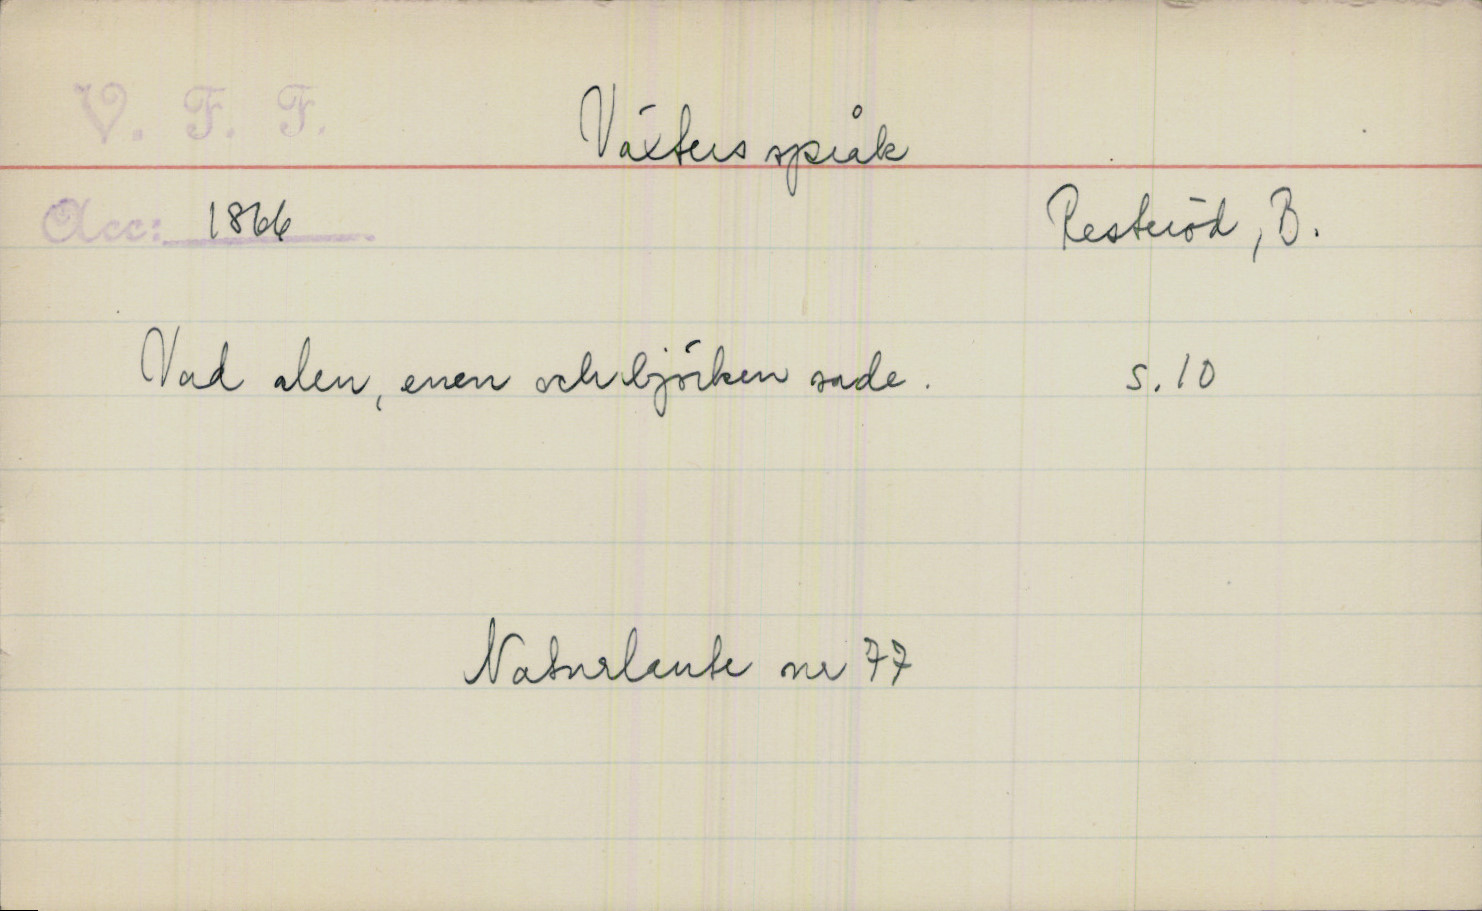 V. F. F.
Växters språk
Acc: 1866
Resteröd, B.
Vad alen, enen och björken sade. s. 10
Naturlaute nr 77